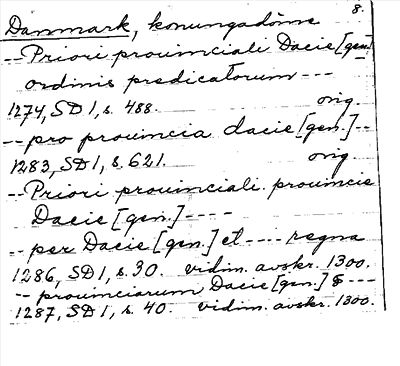 8.
Danmark, konungadöme
-- Priori prouinciali Dacie [gen]
ordinis predicatorum ---
1274, SD 1, s. 488. orig.
-- pro prouincia dacie [gen.] --
1283, SD 1, s. 621. orig.
-- Priori prouinciali. prouincie
Dacie [gen.] ----
-- per Dacie [gen.] et ---- regna
1286, SD 1, s. 30. vidim. avskr. 1300.
-- prouinciarum Dacie [gen.] ----
1287, SD 1, s. 40. vidim. avskr. 1300.